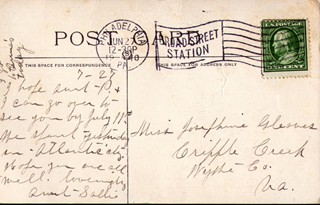 POST CARD
PHILADELPHIA
JUN 27
12-30P
1910
BROAD STREET
STATION
U.S. POSTAGE
THIS SPACE FOR CORRESPONDENCE
THE ADDRESS ONLY
7-27
hope Aunt P. &
I can go over to
see you by July 11th
We spent yesterday
in Atlantic city.
Hope you are all
well. Lovingly
Aunt Sallie
Miss Josephine Gleaves
Cripple Creek
Wythe Co.
Va.